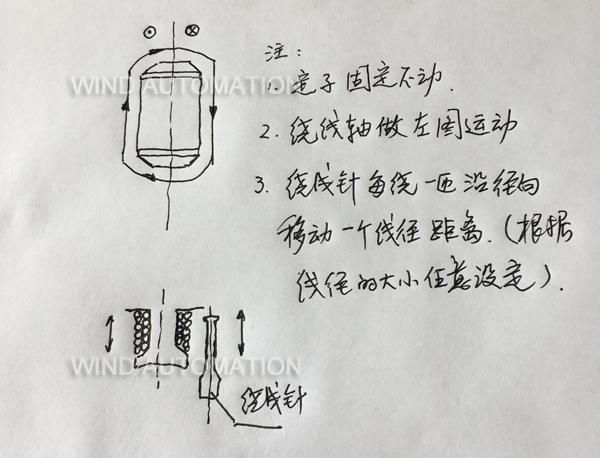 注:
WIND AUTOMATION
1. 定子固定不动.
2. 绕线轴做左圆运动
3. 绕线针每绕一匝沿径向
移动一个线径距离.(根据
线径的大小任意设定).
WIND AUTOMATION
绕线针